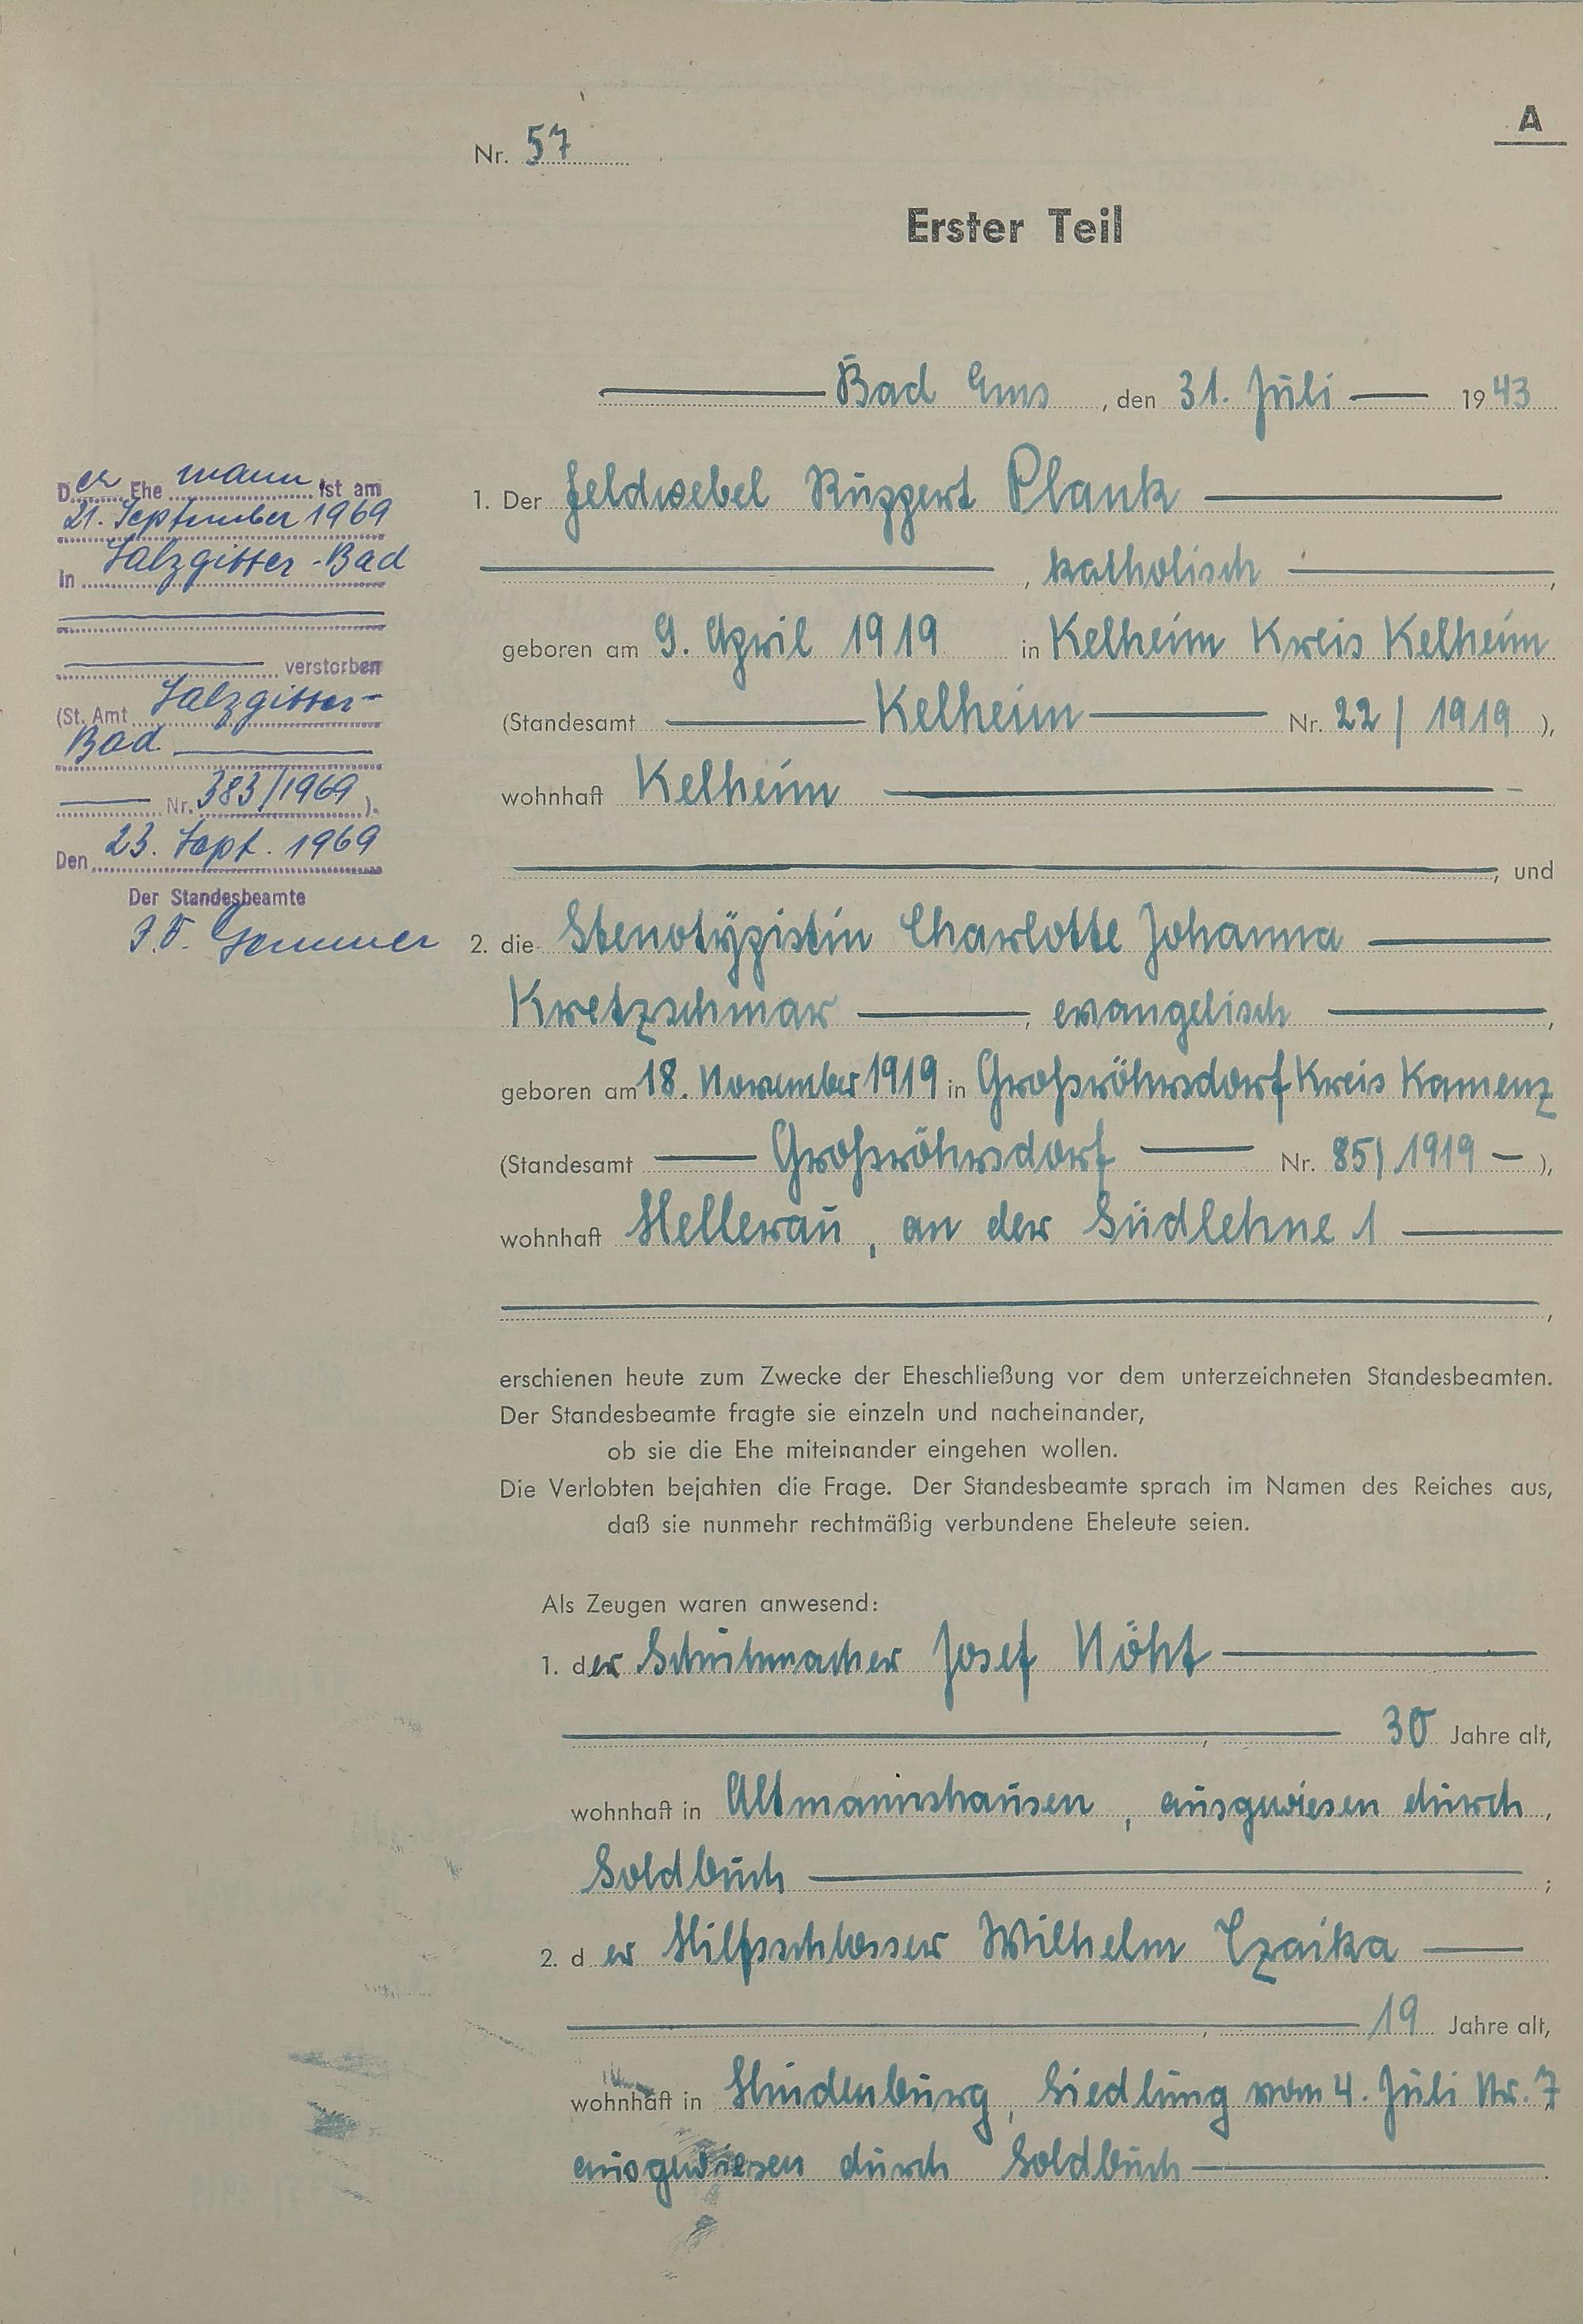 A
Nr. 57
Erster Teil
Bad Ems, den 31. Juli 1943
1. Der Feldwebel Ruppert Plank
, katholisch,
geboren am 9. April 1919 in Kelheim Kreis Kelheim
(Standesamt Kelheim Nr. 22/1919),
wohnhaft Kelheim
, und
2. die Stenotypistin Charlotte Johanna
Kretzschmar, evangelisch,
geboren am 18. November 1919 in Großröhrsdorf Kreis Kamenz
(Standesamt Großröhrsdorf Nr. 85/1919),
wohnhaft Hellerau, an der Südlehne 1
,
erschienen heute zum Zwecke der Eheschließung vor dem unterzeichneten Standesbeamten.
Der Standesbeamte fragte sie einzeln und nacheinander,
ob sie die Ehe miteinander eingehen wollen.
Die Verlobten bejahten die Frage. Der Standesbeamte sprach im Namen des Reiches aus,
daß sie nunmehr rechtmäßig verbundene Eheleute seien.
Als Zeugen waren anwesend:
1. der Schuhmacher Josef Nöht
, 30 Jahre alt,
wohnhaft in Altmannshausen, ausgewiesen durch,
Soldbuch;
2. der Hilfsschlosser Wilhelm Czaika
, 19 Jahre alt,
wohnhaft in Hindenburg, Siedlung vom 4. Juli Nr. 7
ausgewiesen durch Soldbuch.
Der Ehemann ist am
21. September 1969
in Salzgitter-Bad
verstorben
(St. Amt Salzgitter-
Bad
Nr. 383/1969).
Den 23. Sept. 1969
Der Standesbeamte